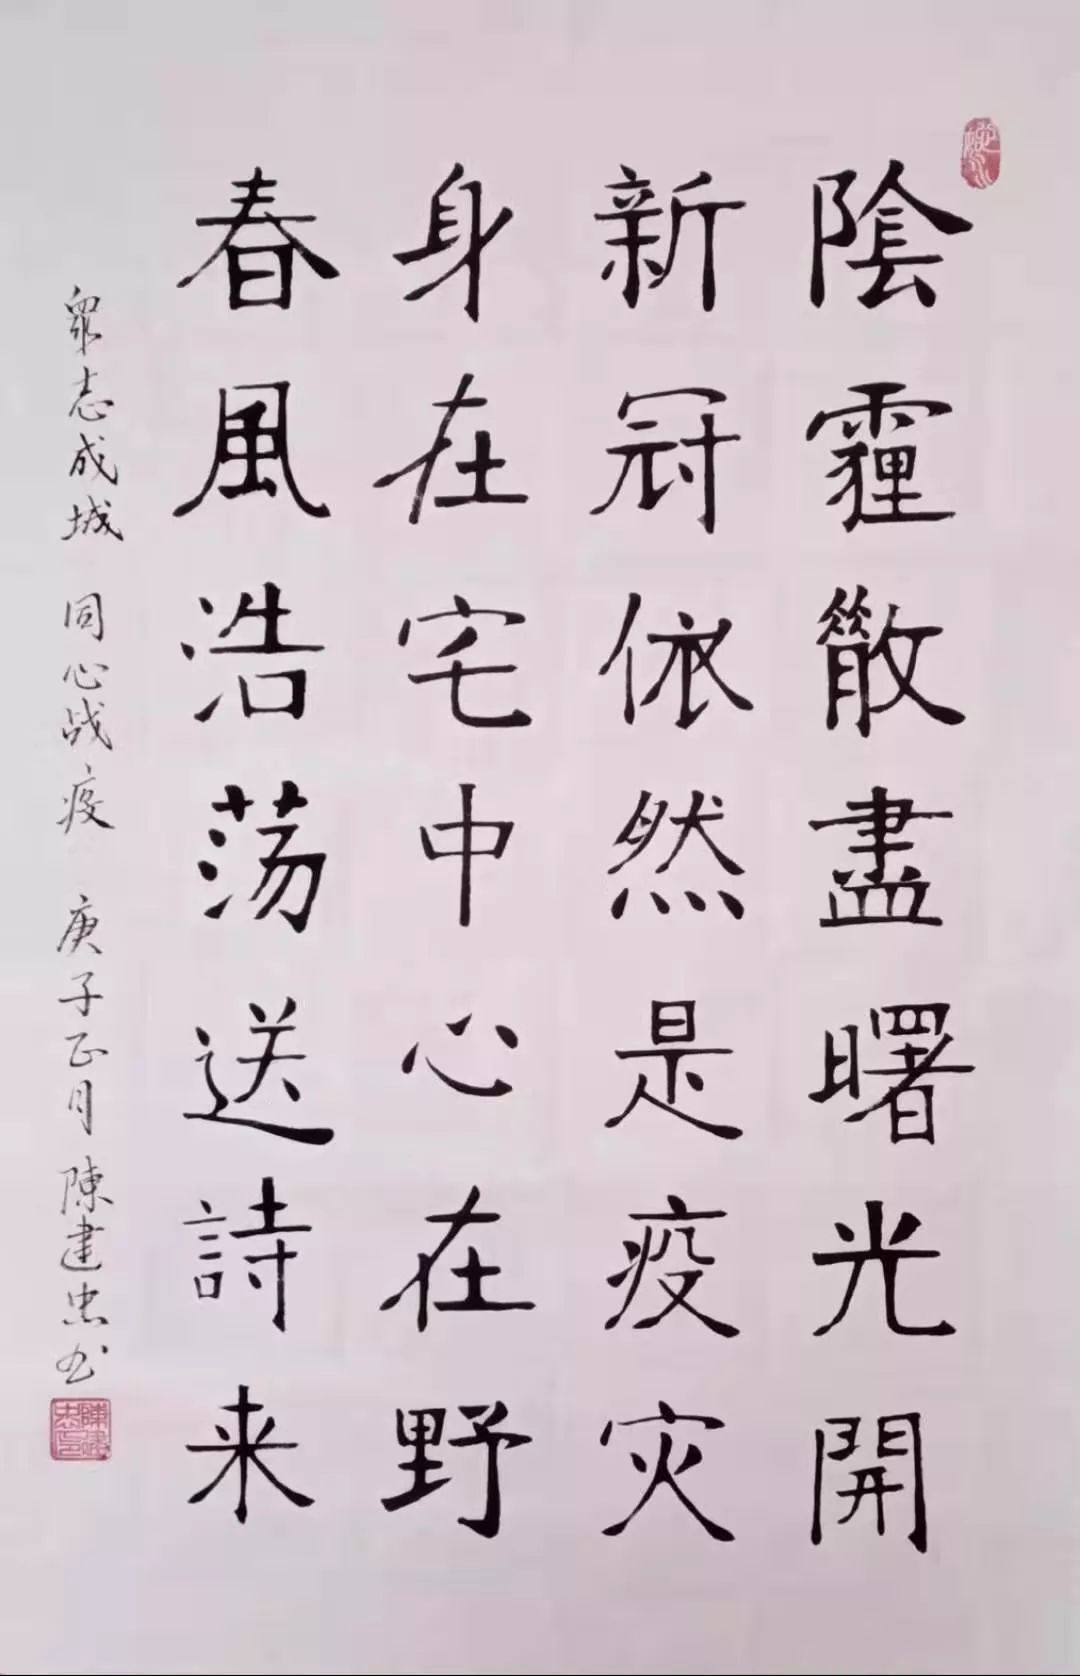 陰霾散盡曙光開
新冠依然是疫灾
身在宅中心在野
春風浩荡送詩来
眾志成城 同心战疫 庚子正月 陳建忠书
陳建忠印